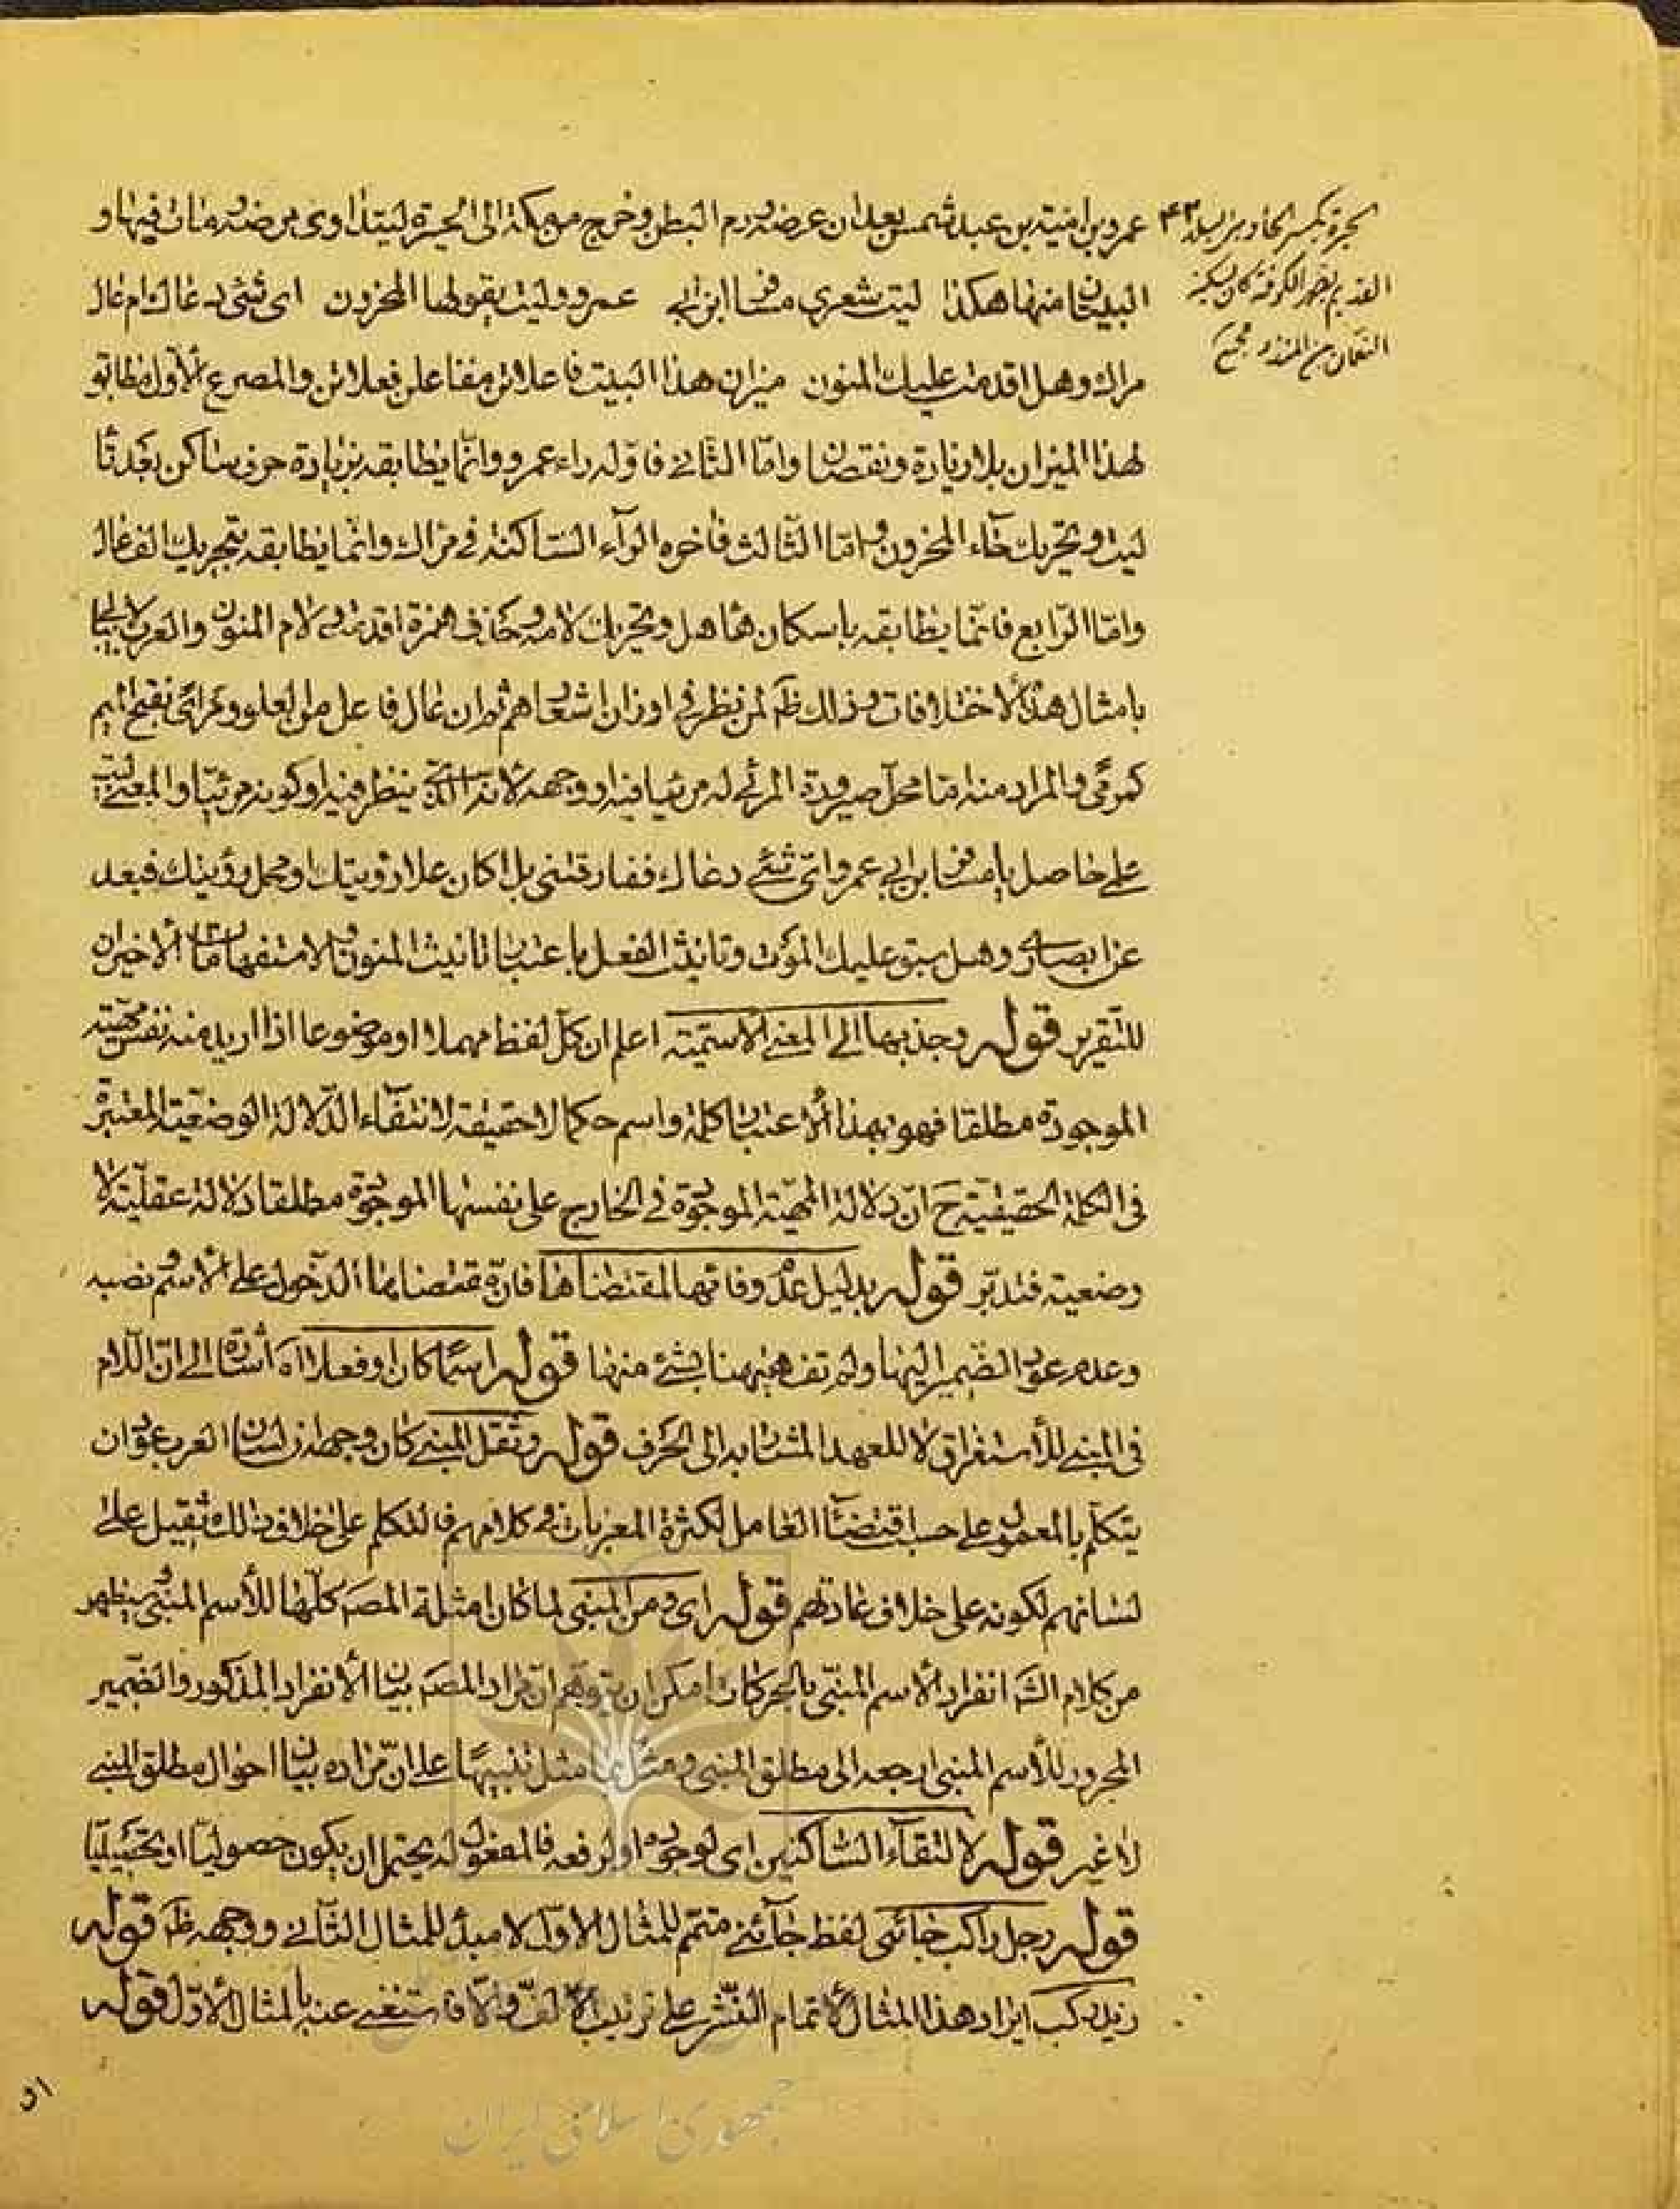 عمرو بن امية بن عبد شمس بعد ان عرضه ورم البطن وخرج من مكة الى الحيرة ليتداوى مرضه فمات فيها و
البيتان منها هكذا ليت شعري مسافر ابن ابي عمرو وليت يقولها المحزون اى شئ دعاك ام غال
مراك وهل اقدمت عليك المنون ميزان هذا البيت فاعلاتن مفاعلن فعلاتن والمصرع الاول مطابق
لهذا الميزان بلا زيادة ونقصان واما الثانى فاوله راء عمرو وانما يطابقه بزيادة حرف ساكن بعد تا
ليت وتحريك حاء المحزون واما الثالث فاخره الراء الساكنة في مراك وانما يطابقه بتحريك الف غال
واما الرابع فانما يطابقه باسكان هاء هل وتحريك لامه وحذف همزة اقدمت ولام المنون والعرب لا يبالى
بامثال هذه الاختلافات وذلك ظ لمن نظر في اوزان اشعارهم ثم ان غال فاعل من العلو ومرائ بفتح الميم
كمرمى والمراد منه اما محل صيرورة المرئى له مرئيا فيه او وجهه لانه ينظر فيه او كونه مرئيا والمعنى ليت
على حاصل يا مسافر ابن ابي عمرو اى شئ دعاك ففارقتنى بل اكان علا رؤيتك او محل رؤيتك فبعد
عن ابصارنا وهل سبق عليك الموت وتانيث الفعل باعتبار تانيث المنون والاستفهامان الاخيران
للتقرير قوله وجذبهما الى المعنى الاسمية اعلم ان كل لفظ مهملا او موضوعا اذا اريد منه نفس مهيته
الموجودة مطلقا فهو بهذا الاعتبار كلمة واسم حكما لا حقيقة لانتفاء الدلالة الوضعية المعتبرة
في الكلمة الحقيقية ح ان دلالة المهية الموجودة في الخارج على نفسها الموجودة مطلقا دلالة عقلية لا
وضعية فتدبر قوله بدليل عدم وفائهما لمقتضاها فان مقتضاهما الدخول على الاسم ونصبه
وعدم عود الضمير اليها ولم تف هيهنا بشئ منها قوله اسما كان او فعلا اه اشارة الى ان اللام
في المبنى للاستغراق لا للعهد المشار به الى الحرف قوله وثقل المبنى كان وجهه ان لسان العرب عود ان
يتكلم بالمعمول على حسب اقتضاء العامل لكثرة المعربات في كلامهم فالتكلم على خلاف ذلك ثقيل على
لسانهم لكونه على خلاف عادتهم قوله اى ومن المبنى لما كان امثلة المصه كلها للاسم المبنى ويظهر
من كلام الشه انفراد الاسم المبنى بالحركات امكن ان يتوهم ان مراد المصه بيان الانفراد المذكور والضمير
المجرور للاسم المبنى ارجعه الى مطلق المبنى ومثل بما مثل تنبيها على ان مراده بيان احوال مطلق المبنى
لا غير قوله لالتقاء الساكنين اى لوجوده او لرفعه فالمفعول له يحتمل ان يكون حصوليا او تحصيليا
قوله رجل راكب جائنى لفظ جائنى متمم للمثال الاول لا مبدء للمثال الثانى ووجهه ظ قوله
زيد ركب ايراد هذا المثال لاتمام النشر على ترتيب اللف والا فاستغنى عنه بالمثال الاول قوله
الحيرة بكسر الحاء البلد
القديم بظهر الكوفة كان يسكنه
النعمان بن المنذر مجمع
۴۳
جمهوری اسلامی ایران